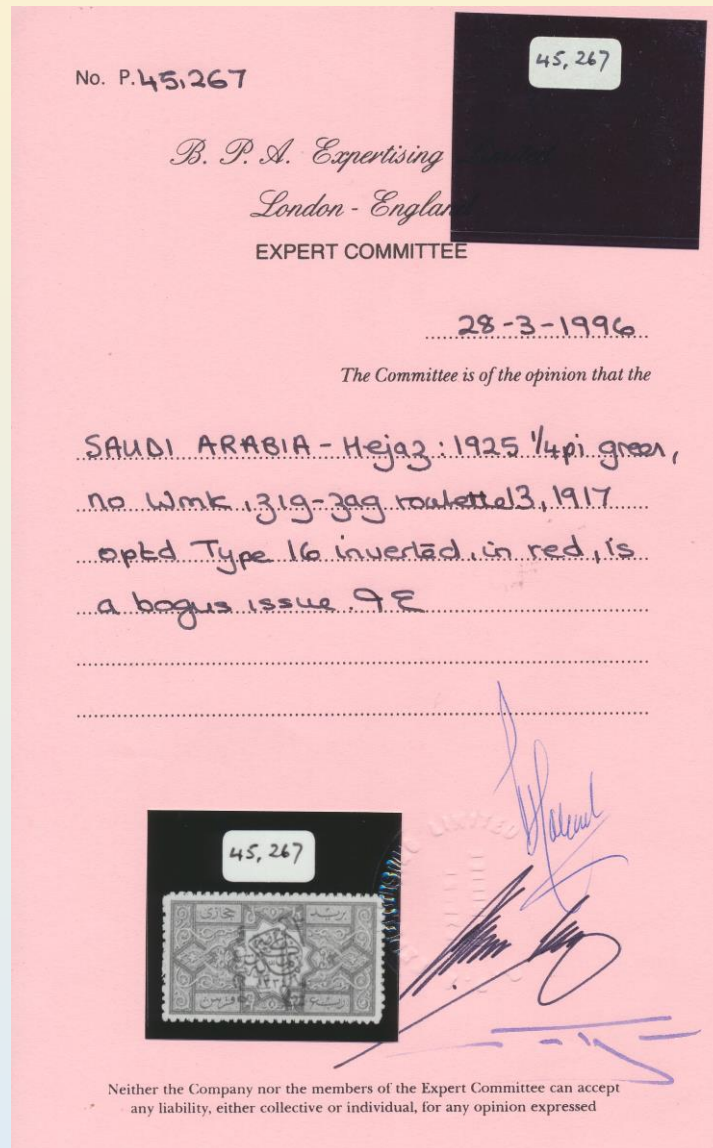 No. P. 45,267
45,267
B. P. A. Expertising
London - England
EXPERT COMMITTEE
28-3-1996
The Committee is of the opinion that the
SAUDI ARABIA - Hejaz: 1925 1/4pi green,
no Wmk, zig-zag roulette 13, 1917
optd Type 16 inverted, in red, is
a bogus issue.
45,267
حجازى بريد
LIMITED
Neither the Company nor the members of the Expert Committee can accept
any liability, either collective or individual, for any opinion expressed